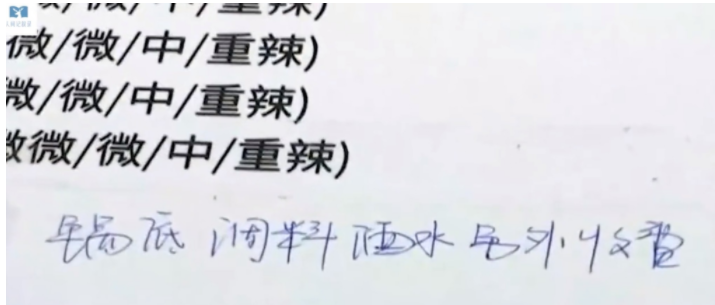 微/微/中/重辣)
微/微/中/重辣)
微微/微/中/重辣)
锅底 调料 酒水 另外收费